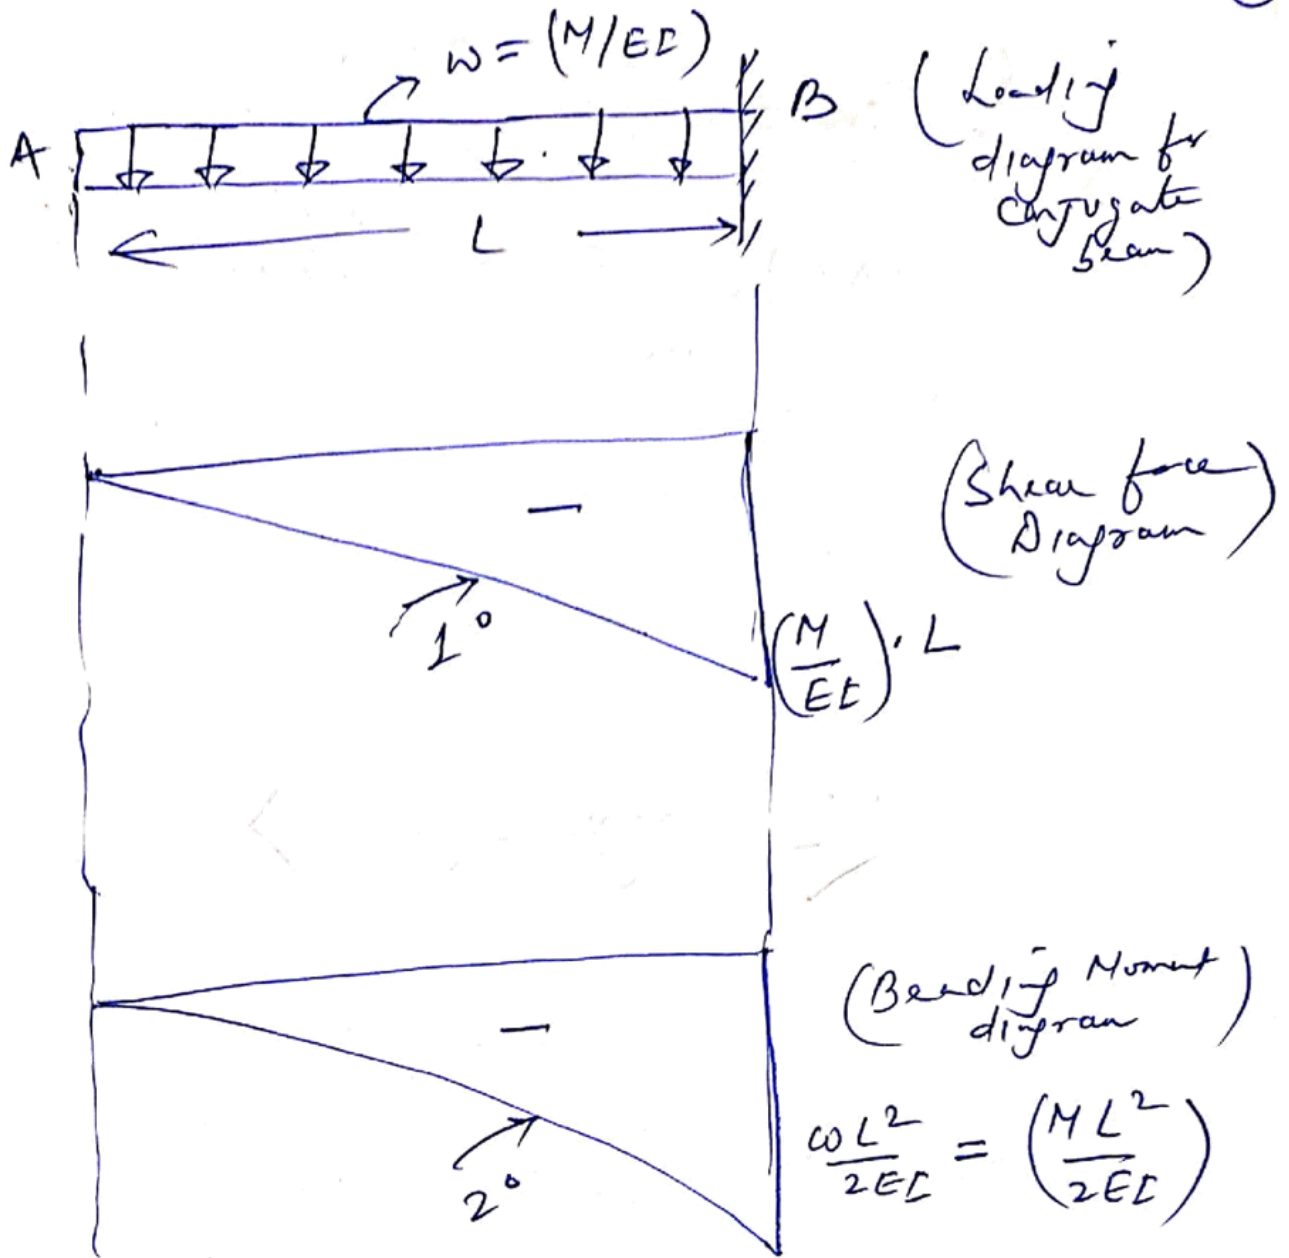 w = (M/EI)
A
B
(Loading
diagram for
conjugate
beam)
L
(Shear force
Diagram)
—
1°
(M/EI) . L
(Bending Moment
diagram)
—
2°
ωL²/2EI = (ML²/2EI)